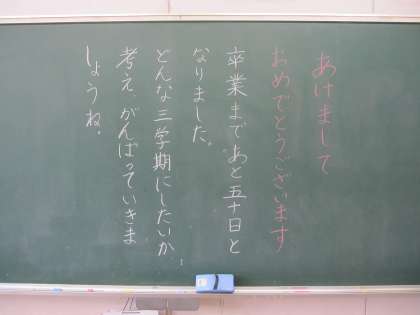 あけまして
おめでとうございます
卒業まであと五十日と
なりました。
どんな三学期にしたいか、
考え、がんばっていきま
しょうね。